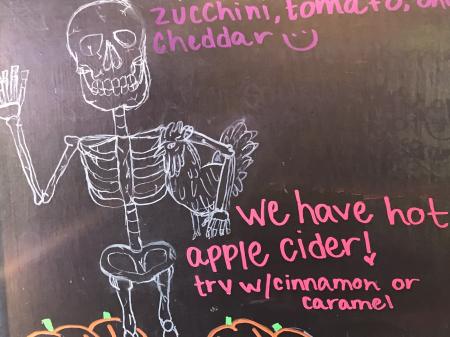 zucchini, tomato, and
cheddar
we have hot
apple cider!
try w/cinnamon or
caramel